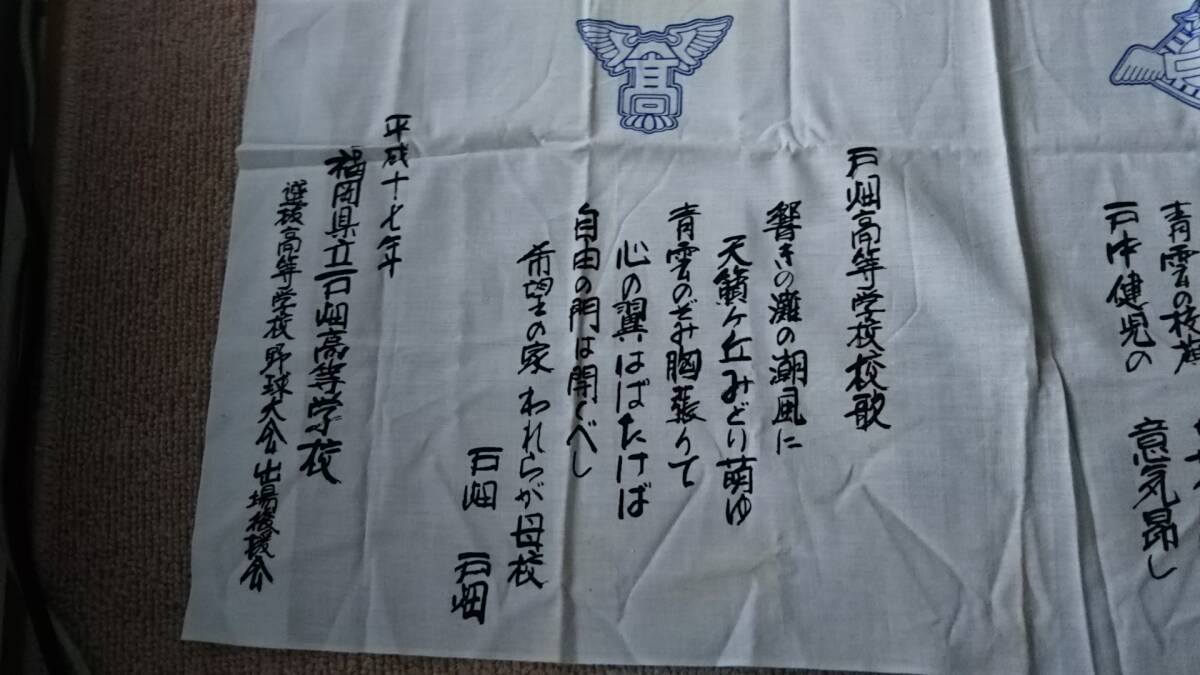 青雲の
戸中健児の 意気昂し
高
戸畑高等学校校歌
響きの灘の潮風に
天籟ヶ丘みどり萌ゆ
青雲のぞみ胸張りて
心の翼はばたけば
自由の門は開くべし
希望の家 われらが母校
戸畑 戸畑
平成十七年
福岡県立戸畑高等学校
選抜高等学校野球大会出場後援会